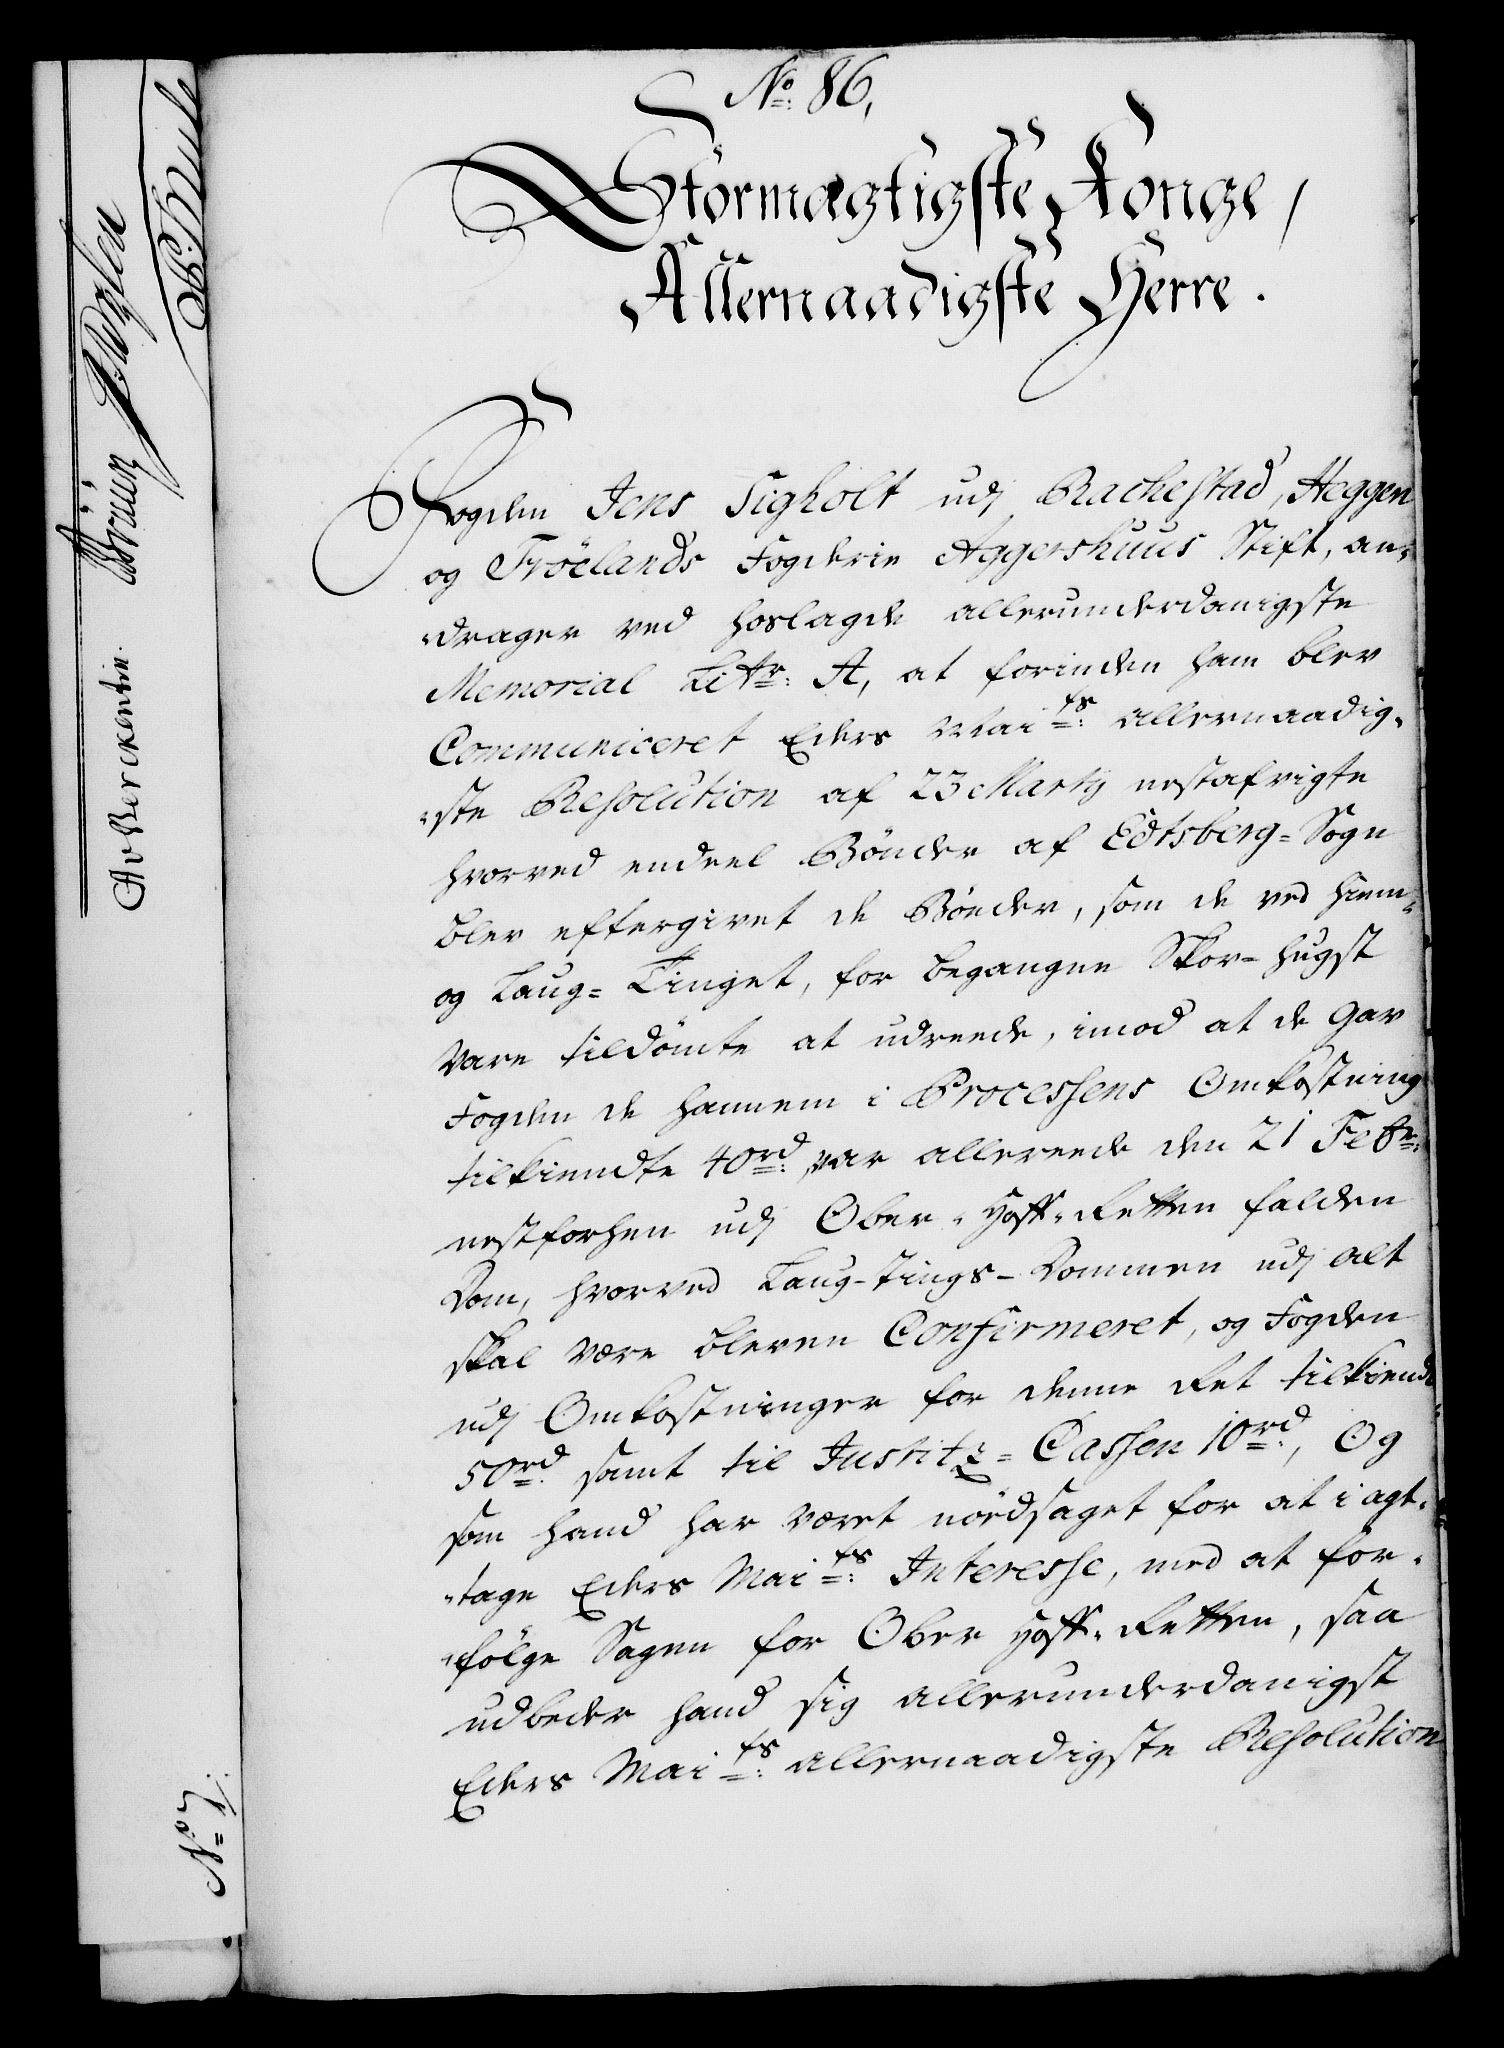 No: 86,
Stormægtigste Konge,
Allernaadigste Herre.
Fogden Jens Sigholt udj Rachestad, Heggen
og Fröelands Fogderie Aggershuus Stift, an-
drager ved hoslagde allerunderdanigste
Memorial Litr: A, at forinden ham blev
Communiceret Eders Maits: allernaadig-
ste Resolution af 23 Marty nestafvigte
hvorved endeel Bönder af Edtsberg-Sogn
blev eftergivet de Böeder, som de ved Hiem-
og Laug-Tinget, for begangne Skov-hugst
vare tildömte at udreede, imod at de gav
Fogden de hannem i Processens Omkostning
tilkiendte 40rd: var allereede den 21 Febr:
nestforhen udj Ober-Hoff-Retten falden
Dom, hvorved Laug-Tings-Dommen udj alt
skal være bleven Confirmeret, og Fogden
udj Omkostninger for denne Ret tilkiendt
50rd: samt til Justitz-Cassen 10rd:, Og
som hand har været nödsaget for at i agt-
tage Eders Maits: Interesse, med at for-
fölge Sagen for Ober Hoff-Retten, saa
udbeder hand sig allerunderdanigst
Eders Maits: allernaadigste Resolution
AvBerckentin.
No 7.